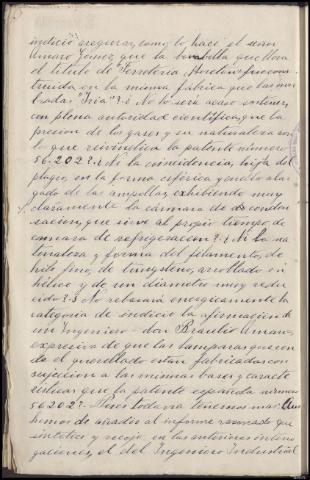 indicio asegurar, como lo hace el señor
Amaro Gomez, que la bombilla que lleva
el título de "Ferretería, fue cons-
truida en la misma fábrica que las mar-
cadas "Iria"? ¿No lo será acaso sostener,
con plena autoridad científica, que la
presion de los gases y su naturaleza son
lo que reivindica la patente número
56.202? ¿Ni la coincidencia, hija del
plagio, en la forma esférica y cuello alar-
gado de las ampollas, exhibiendo muy
claramente la cámara de conden-
sacion, que sirve al propio tiempo de
camara de refrigeracion? ¿Ni la na-
turaleza y forma del filamento, de
hilo fino, de tungsteno, arrollado en
hélice y de un diametro muy redu-
cido? ¿No rebasará energicamente la
categoria de indicio la afirmacion de
un Ingeniero - don Braulio
expresiva de que las lamparas que ven-
de el querellado estan fabricadas con
sujecion a las mismas bases y caracte-
risticas que la patente española número
56202? Pues todavía tenemos mas: Aun
hemos de añadir al informe razonado que
sintetiza y recoje en las anteriores interro-
gaciones, el del Ingeniero Industrial